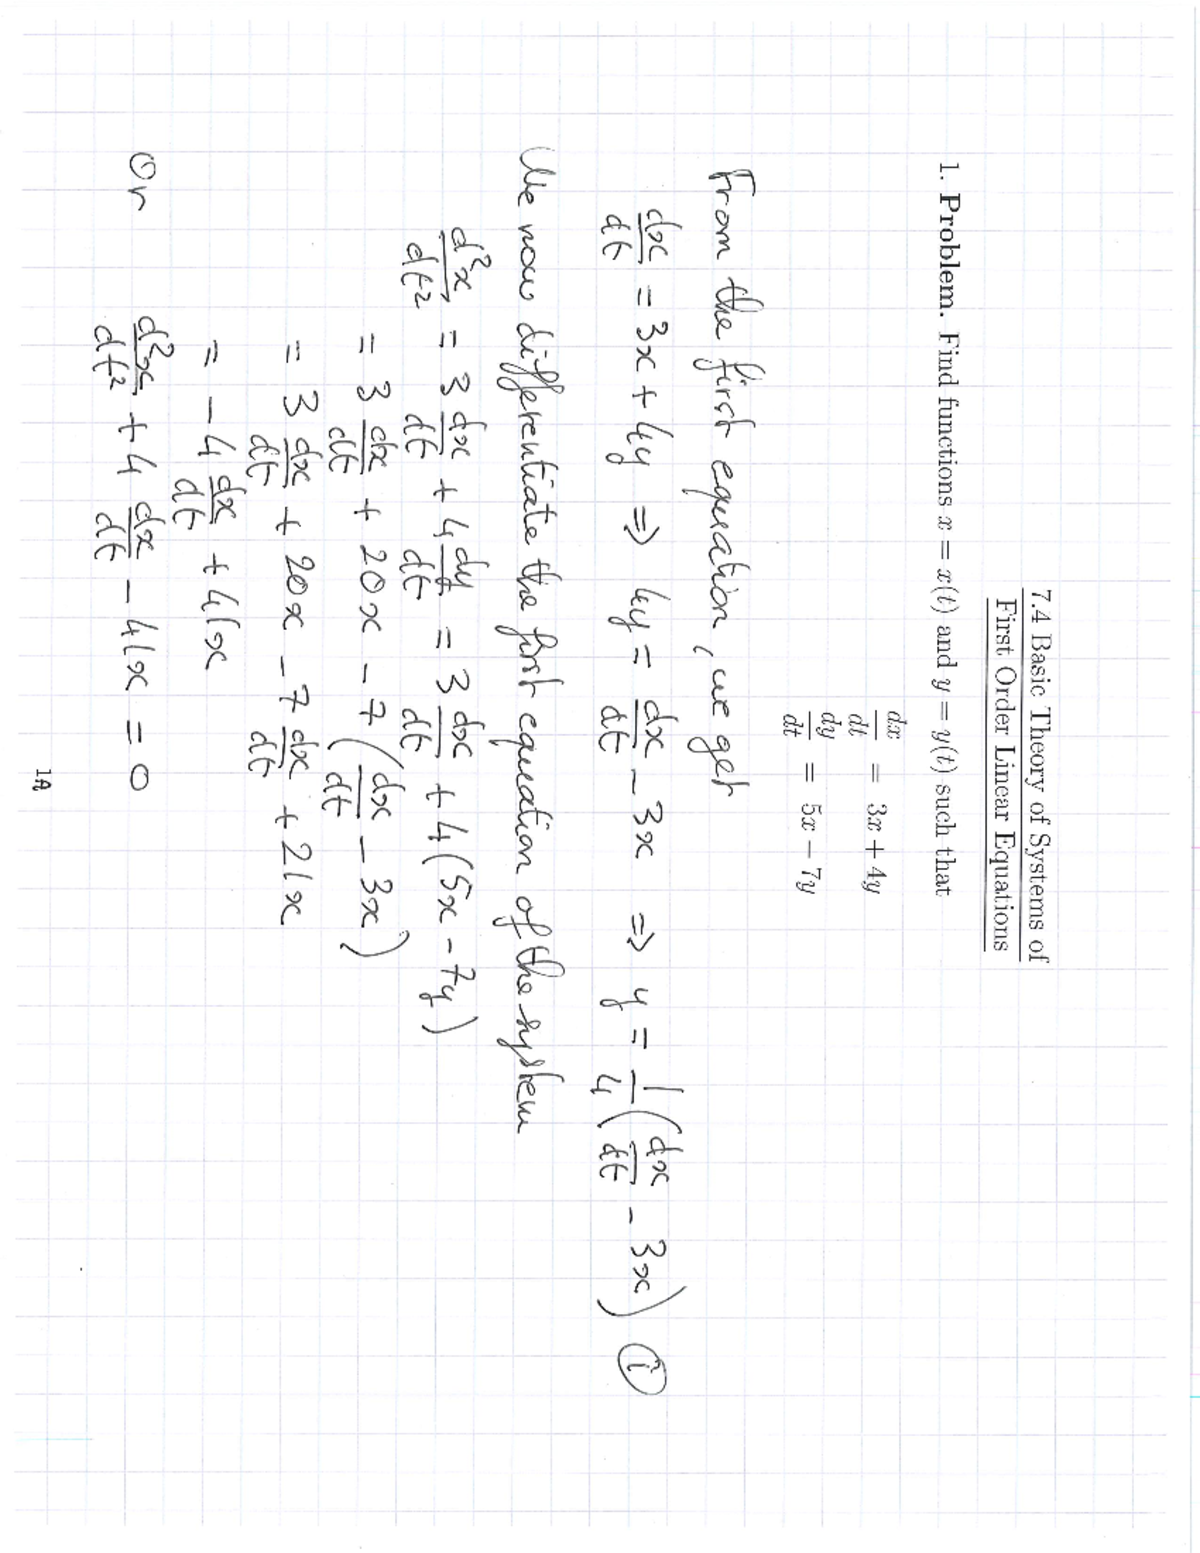 7.4 Basic Theory of Systems of
First Order Linear Equations
1. Problem. Find functions x = x(t) and y = y(t) such that
dx/dt = 3x + 4y
dy/dt = 5x − 7y
From the first equation, we get
dx/dt = 3x + 4y ⇒ 4y = dx/dt − 3x ⇒ y = 1/4 (dx/dt − 3x) (i)
We now differentiate the first equation of the system
d²x/dt² = 3 dx/dt + 4 dy/dt = 3 dx/dt + 4(5x − 7y)
= 3 dx/dt + 20x − 7(dx/dt − 3x)
= 3 dx/dt + 20x − 7 dx/dt + 21x
= −4 dx/dt + 41x
Or d²x/dt² + 4 dx/dt − 41x = 0
1A